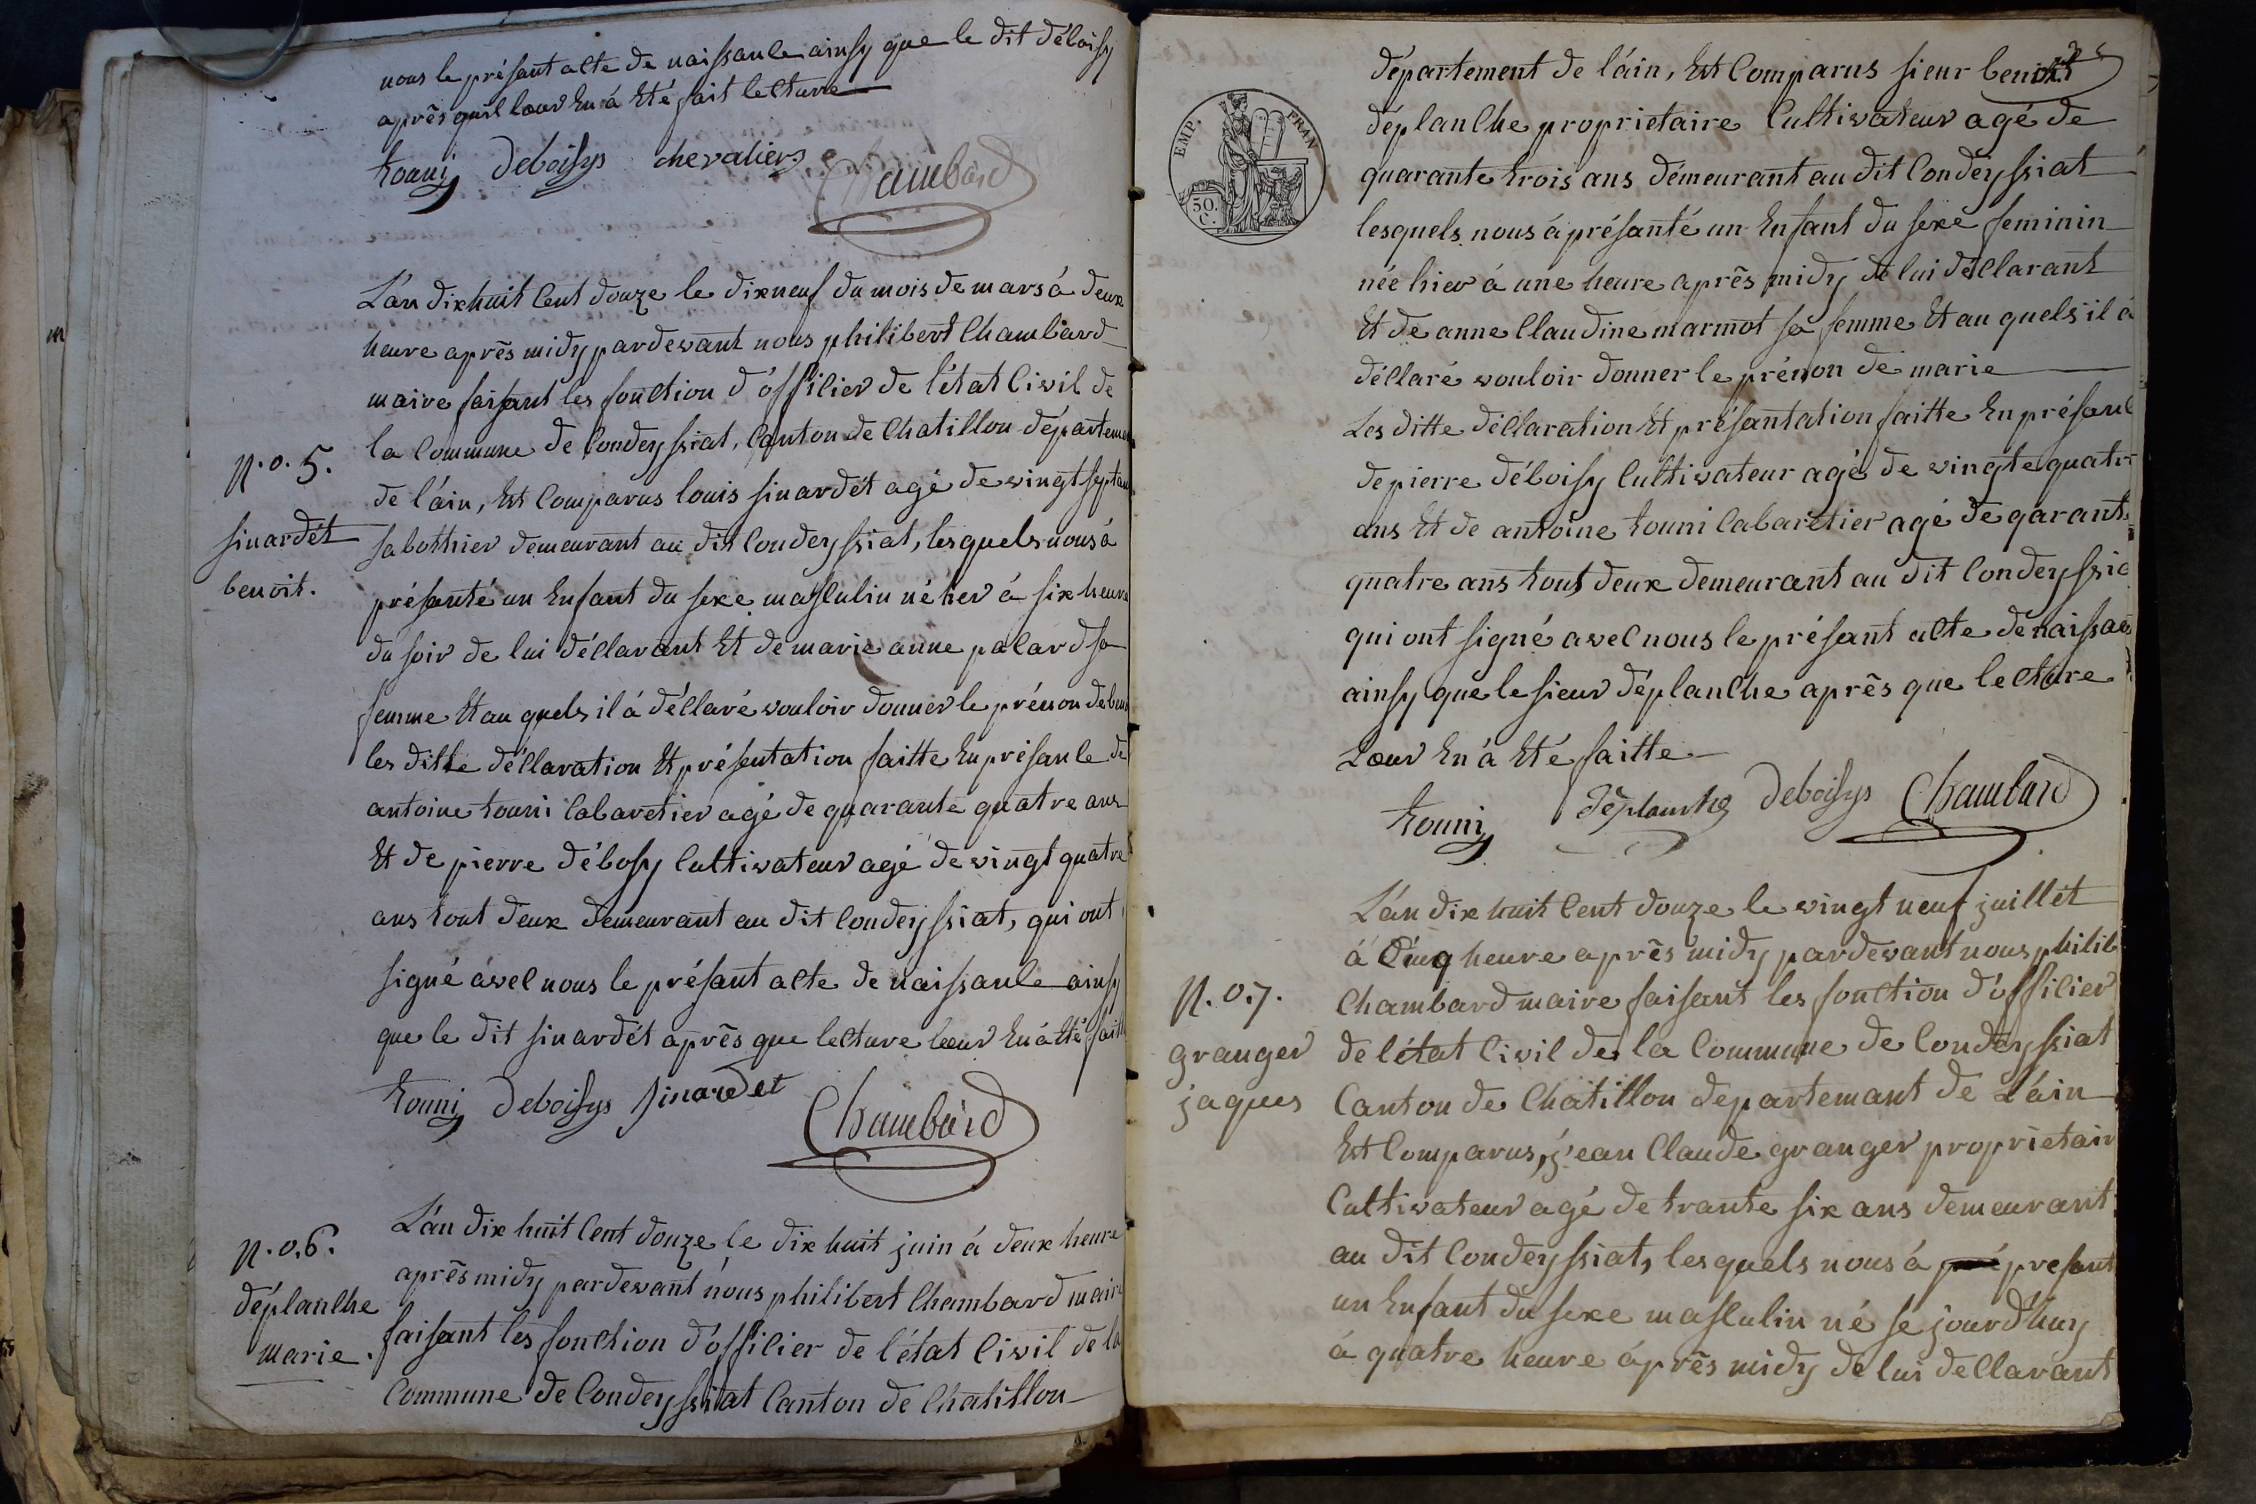 nous le présant acte de naissance ainsy que le dit déboisy
après quil lœur En á Eté fait lecture
touni deboisys chevaliers Chambard
L'án dixhuit Cent douze le dixneuf du mois de mars á deux
heure après midy pardevant nous philibert Chambard
maire faisant les fonction d'óffilier de l'état Civil de
la Commune de Condeyssiat, Canton de Chatillon départeme
N.o. 5.
de l'áin, Est Comparus louis sinardét agé de vingt sept an
sinardét
sabothier demeurant au dit Condeyssiat, lesquels nous á
benoit.
présanté un Enfant du sexe masculin né hier á six heure
du soir de lui déclarant Et de marie anne palard sa
femme Et au quels il á déclaré vouloir donner le prénon de ben
les ditte déclaration Et présentation faitte En présance de
antoine touni Cabaretier agé de quarante quatre ans
Et de pierre débosy Cultivateur agé de vingt quatre
ans tout deux demeurant au dit Condeyssiat, qui ont
signé ávec nous le présant acte de naissance ainsy
que le dit sinardét après que lecture lœur En á Eté fait
touni deboisys sinardet Chambard
N.o. 6.
L'án dix huit Cent douze le dix huit juin á deux heure
après midy pardevant nous philibert Chambard maire
déplanche
faisant les fonction d'óffilier de l'état Civil de la
marie.
Commune de Condeyssiat Canton de Chatillon
département de l'áin, Est Comparus sieur benoit
EMP. FRAN
50. C.
déplanche proprietaire Cultivateur agé de
quarante trois ans démeurant au dit Condeyssiat
lesquels nous á présanté un Enfant du sexe feminin
née hier á une heure après midy de lui déclarant
Et de anne Claudine marmot sa femme Et au quels il á
déclaré vouloir donner le prénon de marie
Les ditte déclaration Et présantation faitte En présanc
de pierre déboisy Cultivateur agé de vingte quatre
ans Et de antoine touni Cabaretier agé de qarante
quatre ans tout deux demeurant au dit Condeyssia
qui ont signé avec nous le présant acte de naissan
ainsy que le sieur déplanche après que lecture
Lœur En á Eté faitte
touni déplanche deboisys Chambard
L'án dix huit Cent douze le vingt neuf juillét
á Cinq heure après midy pardevant nous philib
N.o. 7.
Chambard maire faisant les fonction d'óffilier
granger
de l'état Civil de la Commune de Condeyssiat
jaques
Canton de Chatillon departemant de L'áin
Est Comparus, jean Claude granger proprietair
Cultivateur agé de trante six ans demeurant
au dit Condeyssiat, lesquels nous á presant
un Enfant du sexe masculin né se jourd'huy
á quatre heure áprès midy de lui declarant